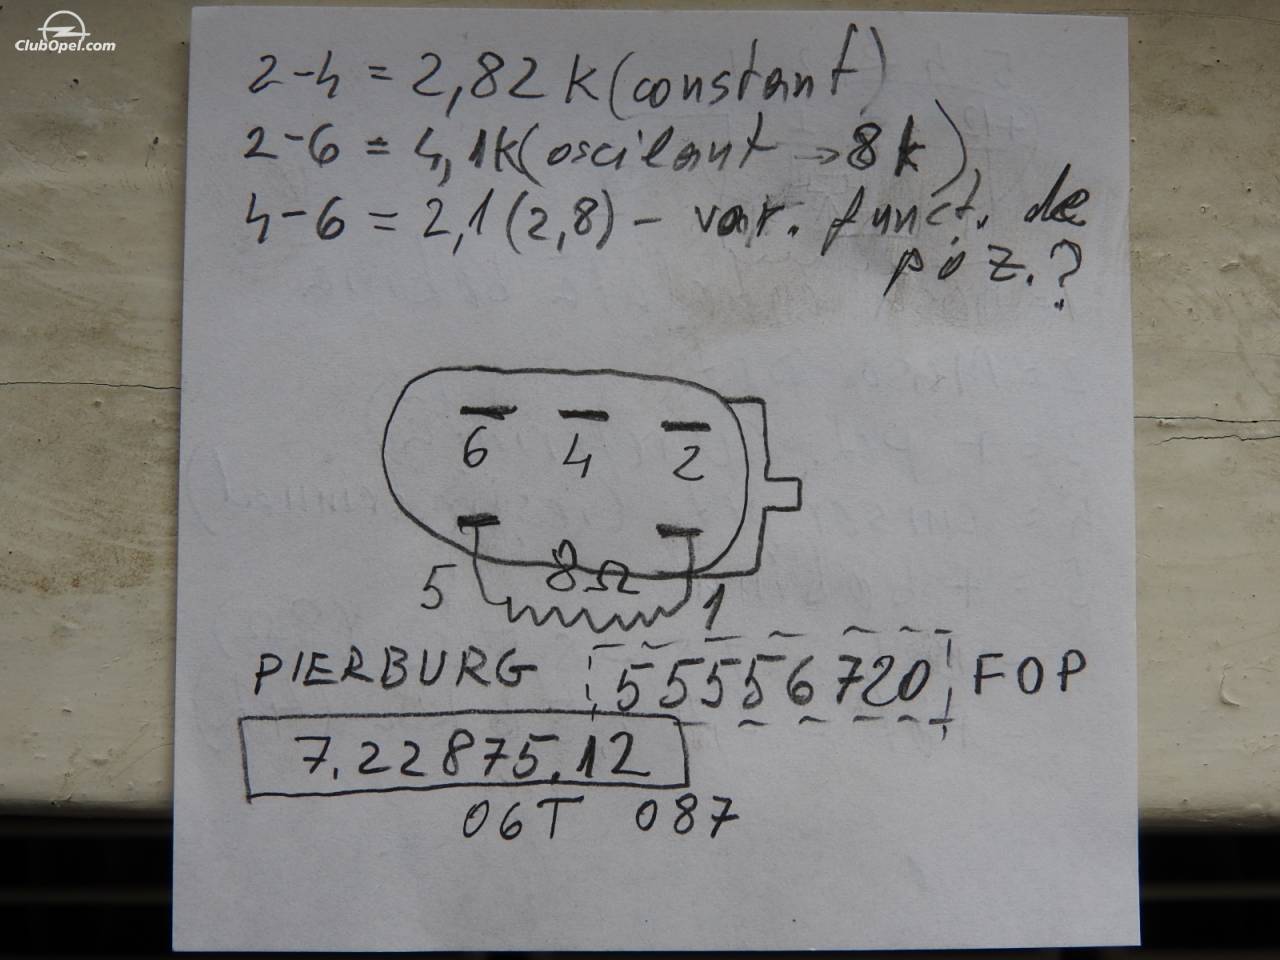 ClubOpel.com
2-4 = 2,82 k (constant)
2-6 = 4,1k (oscilant → 8 k)
4-6 = 2,1 (2,8) - var. funct. de
poz.?
6 4 2
8Ω
5 1
PIERBURG 55556720 FOP
7.22875.12
06T 087